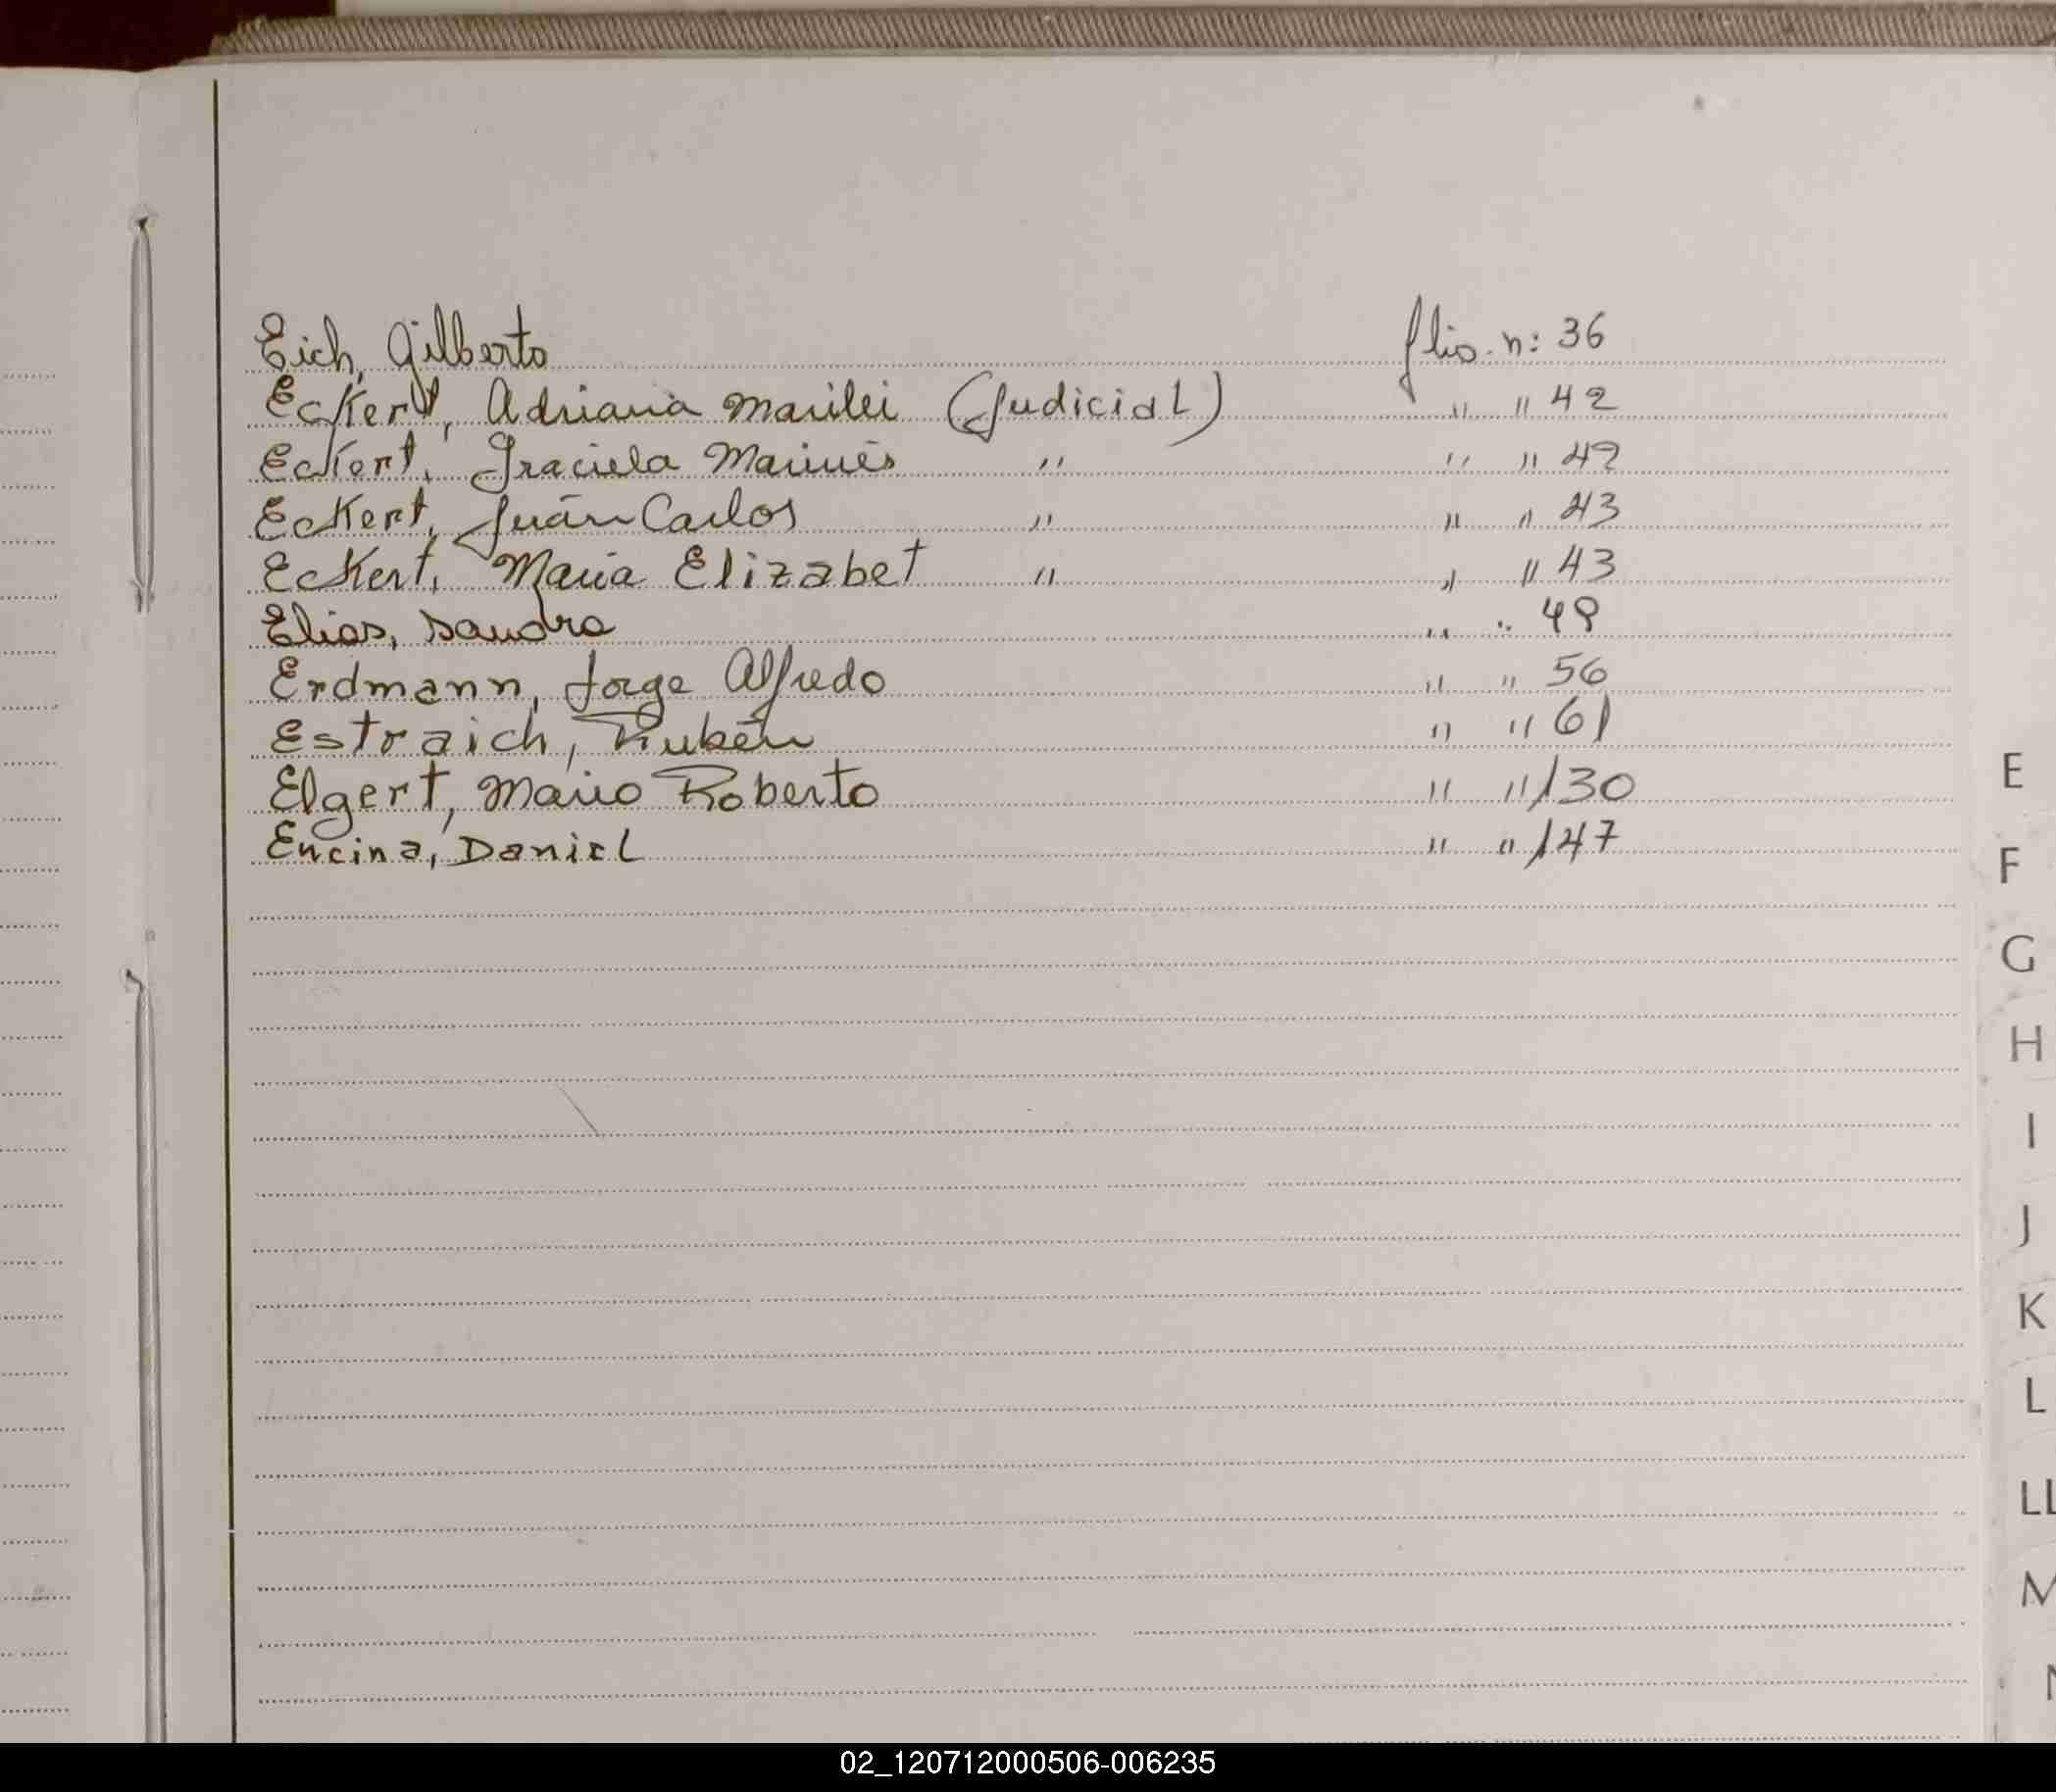 Eich, Gilberto flio. n: 36
Eckert, Adriana Marilei (Judicial) " " 42
Eckert, Graciela Marinés " " " 42
Eckert, Juán Carlos " " " 43
Eckert, Maria Elizabet " " " 43
Elias, Sandra " " 48
Erdmann, Jorge Alfredo " " 56
Estraich, Rubén " " 61
Elgert, Mario Roberto " " 130
Encina, Daniel " " 147
E
F
G
H
I
J
K
L
LL
M
N
02_120712000506-006235